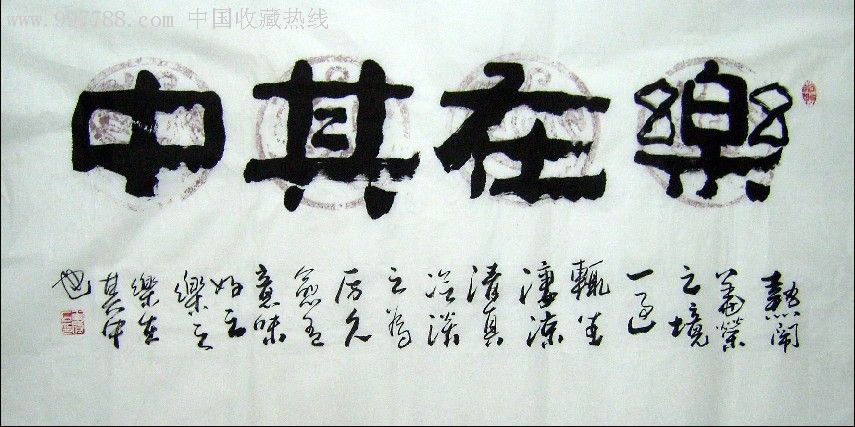 www.997788.com 中国收藏热线
樂在其中
熱鬧
華榮
之境
一過
輒生
淒涼
清真
冷淡
之為
歷久
愈有
意味
樂之
樂在
其中
也